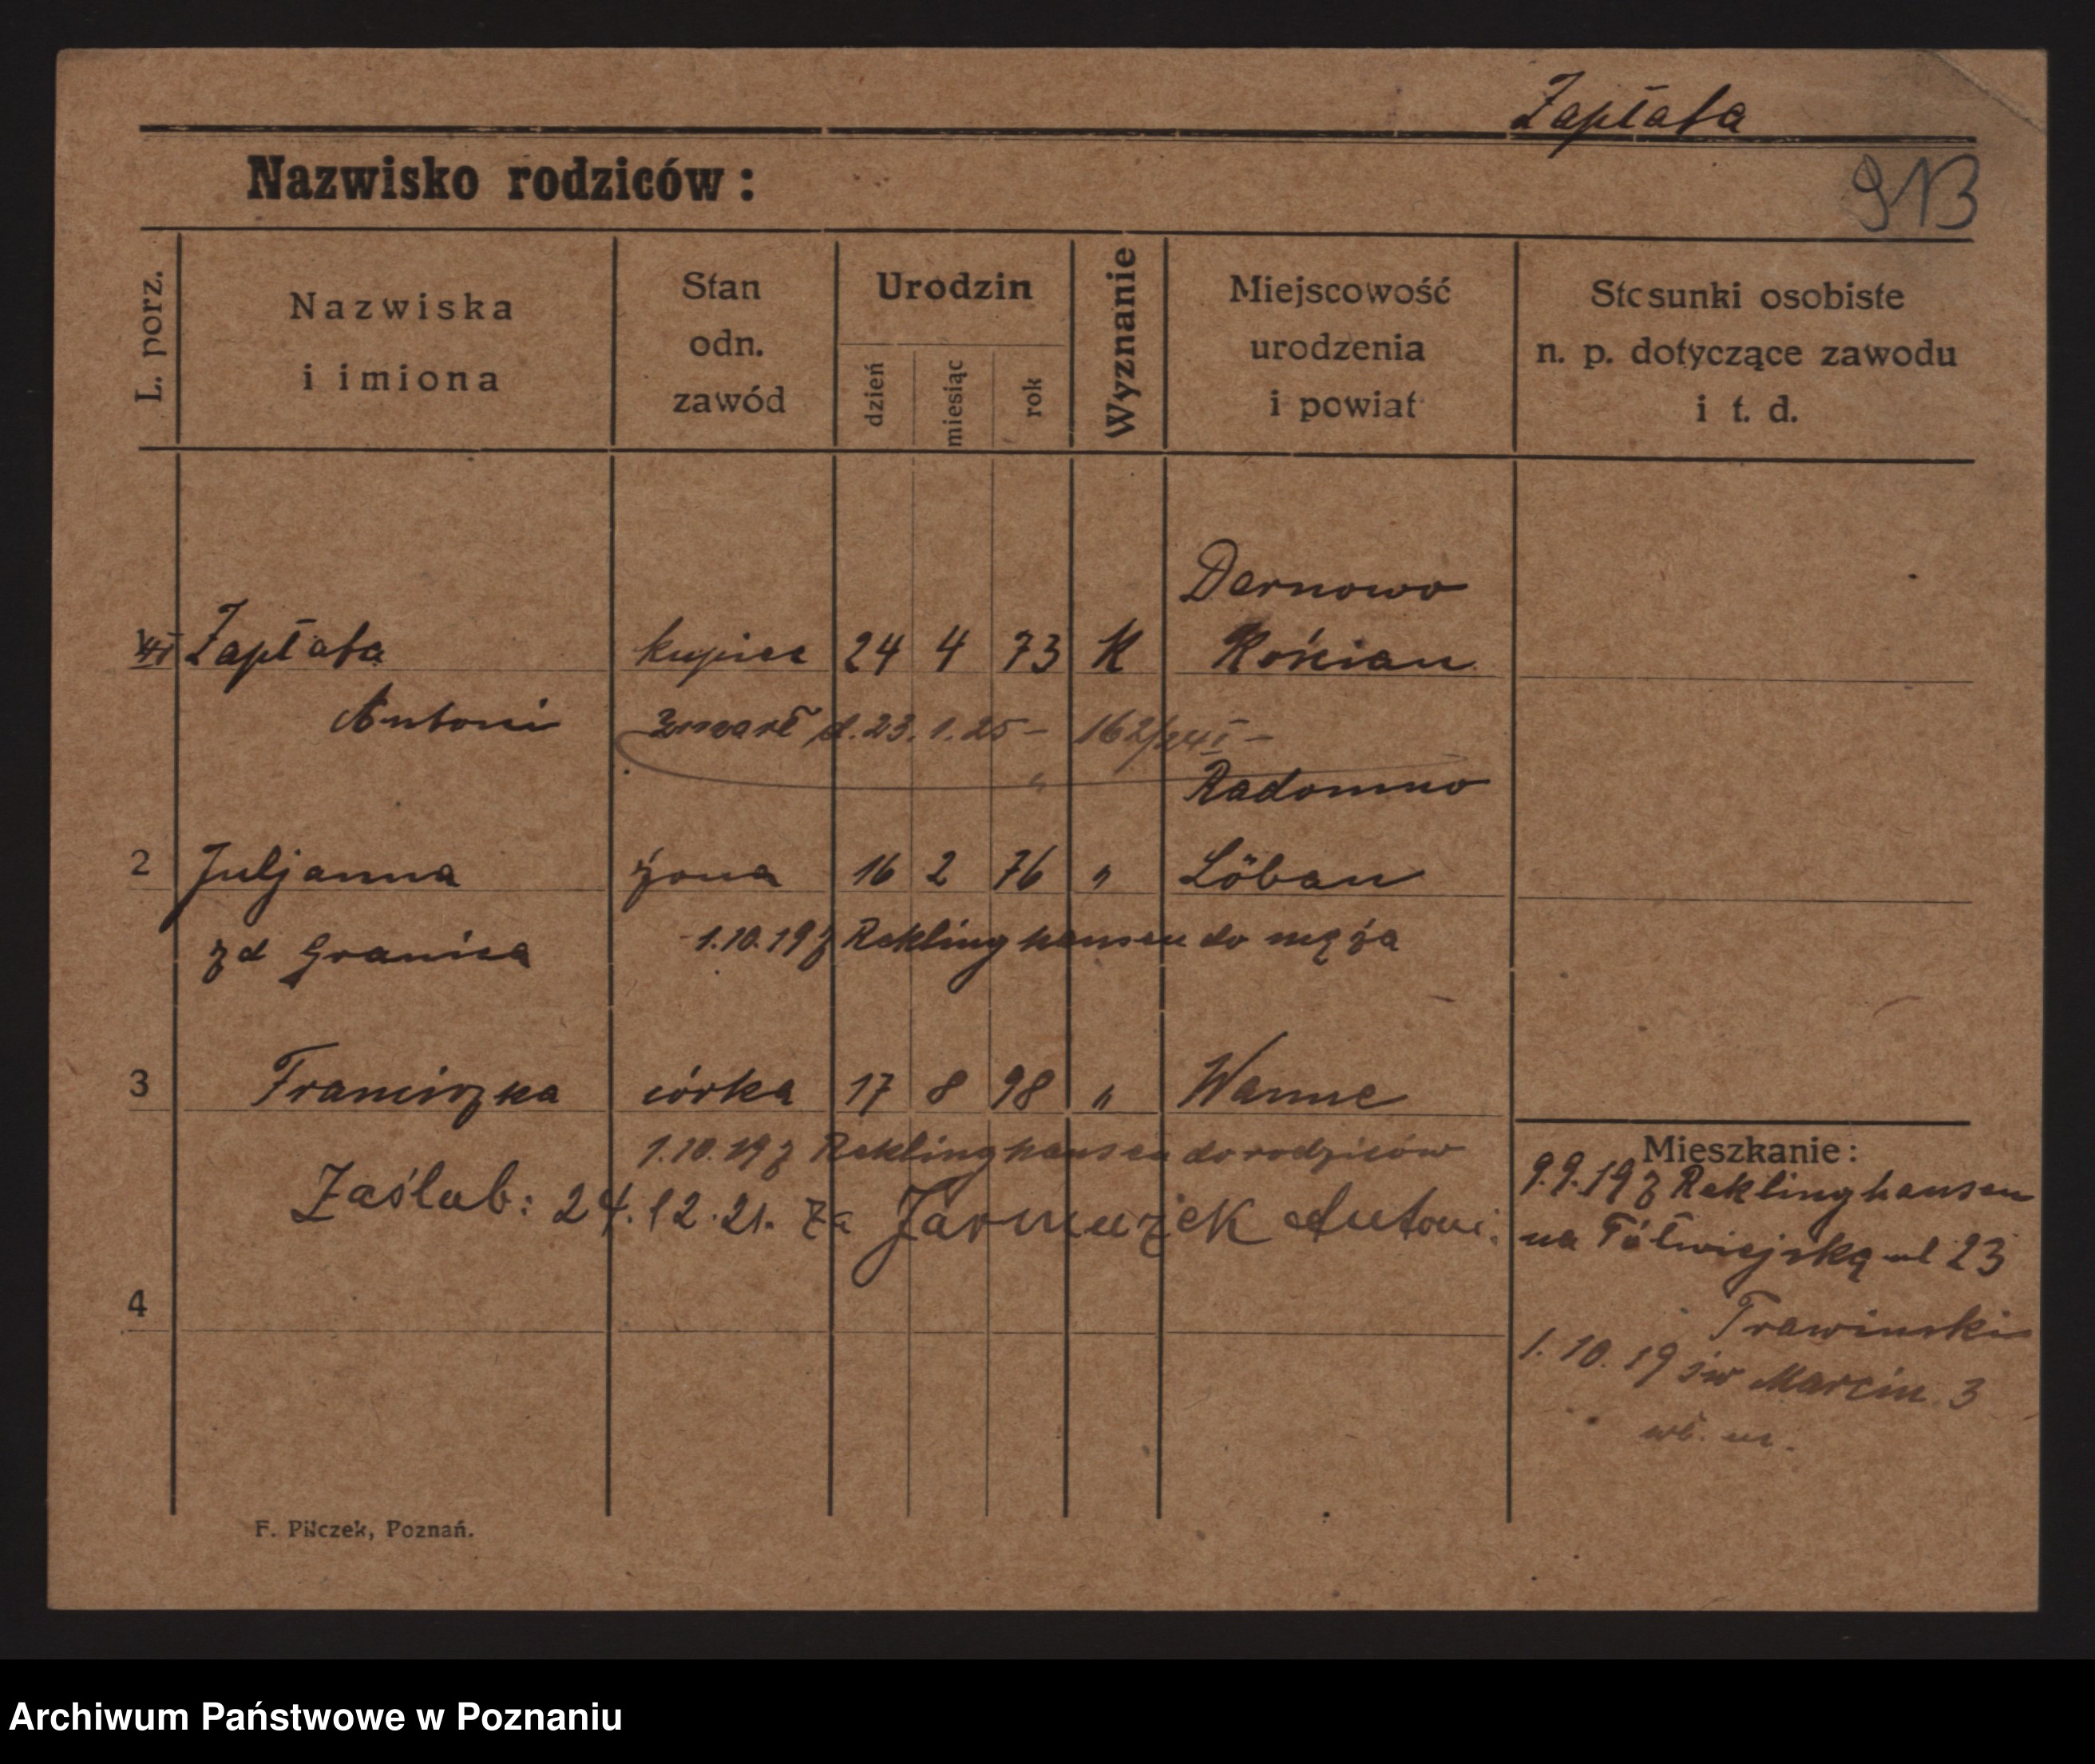 Zapłata
913
Nazwisko rodziców :
L. porz.
Nazwiska
i imiona
Stan
odn.
zawód
Urodzin
dzień
miesiąc
rok
Wyznanie
Miejscowość
urodzenia
i powiat
Stosunki osobiste
n. p. dotyczące zawodu
i t. d.
Dernowo
Zapłata kupiec 24 4 73 K Kościan
Antoni zmarł d. 23.1.25 – 162/
Radomno
2 Juljanna żona 16 2 76 " Löbau
zd Granica 1.10.19 z Reklinghausen do męża
3 Franciszka córka 17 8 98 " Wanne
1.10.19 z Reklinghausen do rodziców
Zaślub: 24.12.21. za Jarmużek Antoni.
4
Mieszkanie :
9.9.19 z Reklinghausen
na Półwiejską ul 23
Trawinski
1.10.19 św Marcin 3
wł. m.
F. Pilczek, Poznań.
Archiwum Państwowe w Poznaniu